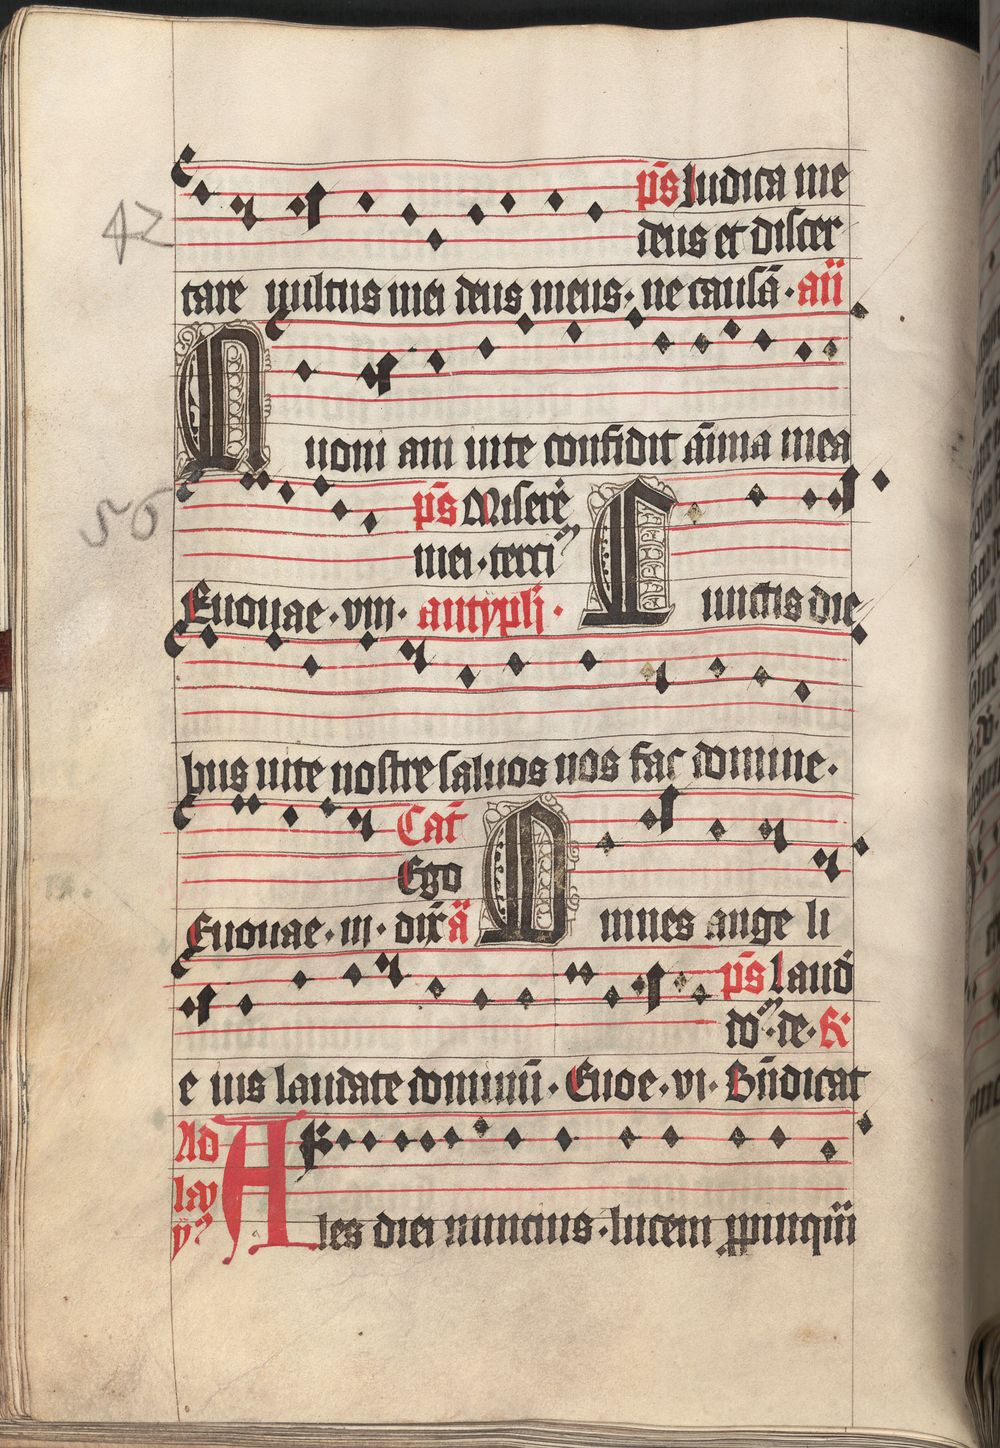 ps̄ Iudica me
42
deus et discer
tare vultus mei deus meus · ne causā · añ
Quoni am in te confidit āima mea
56
ps̄ Misere
mei · terci
Euouae · viij · antyph · Cunctis die
bus vite nostre saluos nos fac domine ·
Cat̄
Ego
Euouae · iij · dix̄ ā Omnes ange li
ps̄ Laud
do · de · R
e ius laudate dominū · Euoe · vi · Bn̄dicat
Ad
lau
Ales diei nuncius · lucem ppinquā